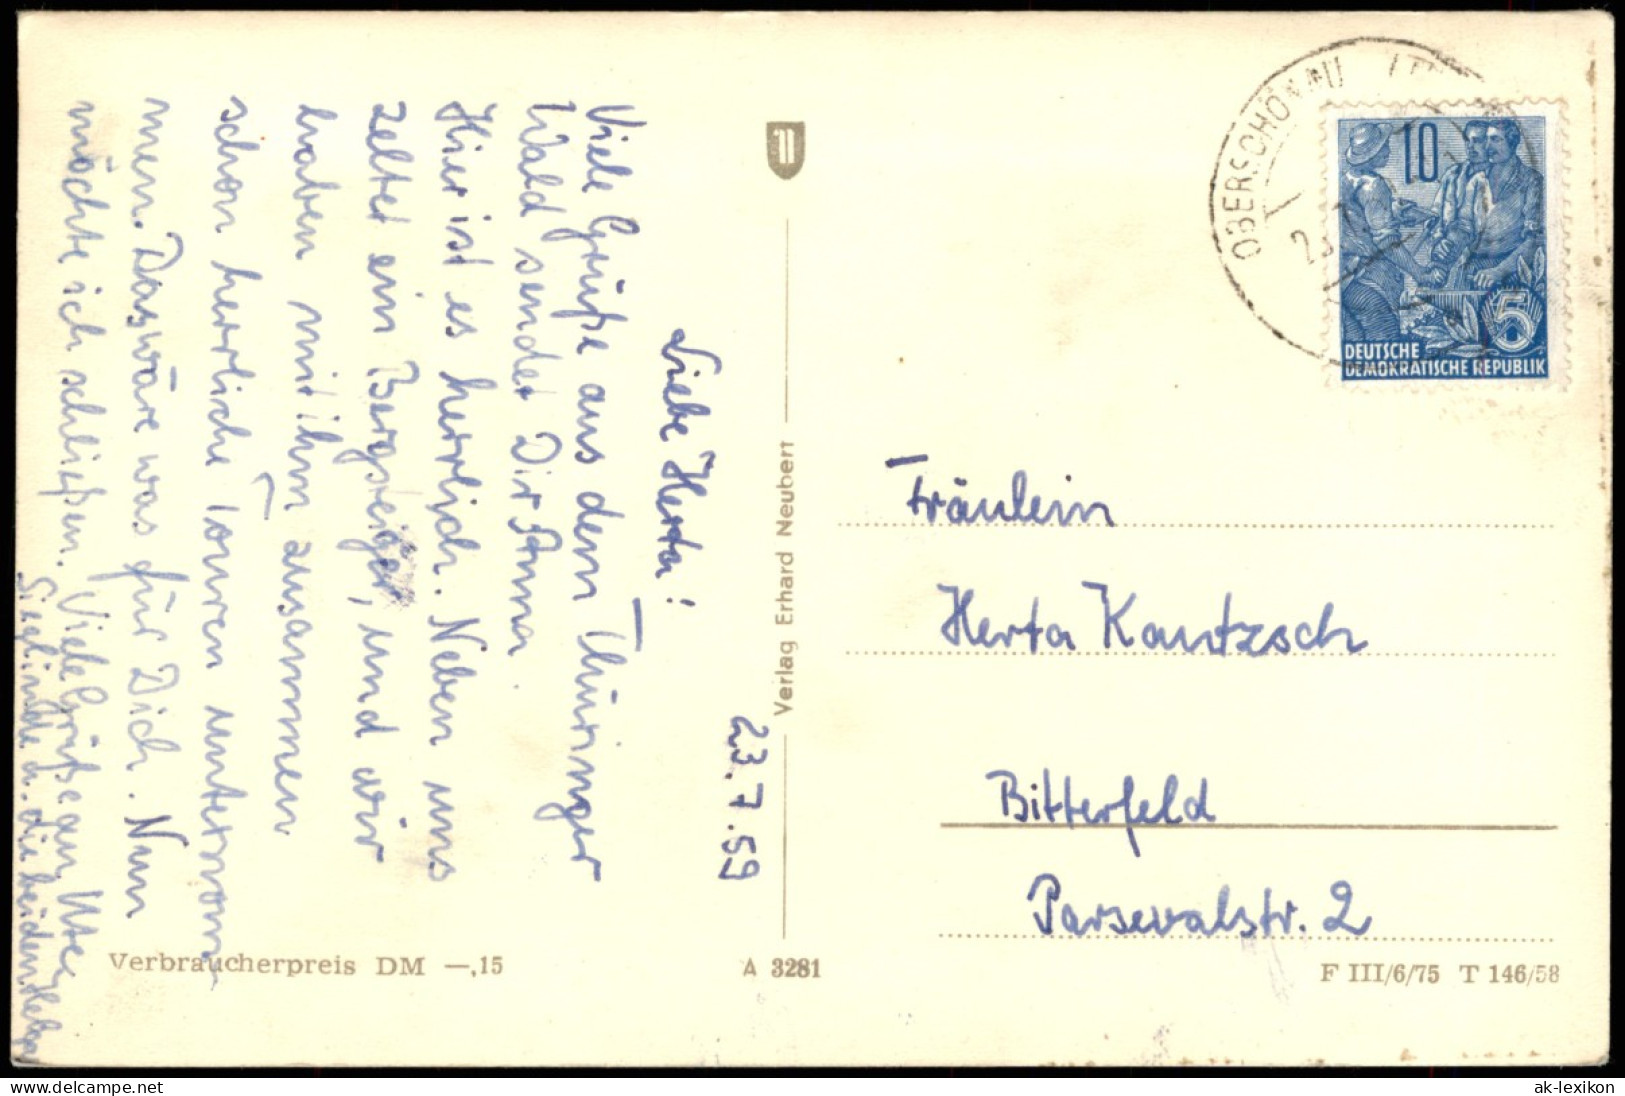 23.7.59
Liebe Herta!
Viele Grüße aus dem Thüringer
Wald sendet Dir Anna.
Hier ist es herrlich. Neben uns
zeltet ein Bergsteiger, und wir
haben mit ihm zusammen
schon herrliche Touren unternom-
men. Das wäre was für Dich. Nun
möchte ich schließen. Viele Grüße an Ute,
Sieglinde u. die beiden
Verbraucherpreis DM —,15
Verlag Erhard Neubert
A 3281
OBERSCHÖNAU
10
5
DEUTSCHE
DEMOKRATISCHE REPUBLIK
Fräulein
Herta Kantzsch
Bitterfeld
Parsevalstr. 2
F III/6/75 T 146/58
www.delcampe.net
ak-lexikon